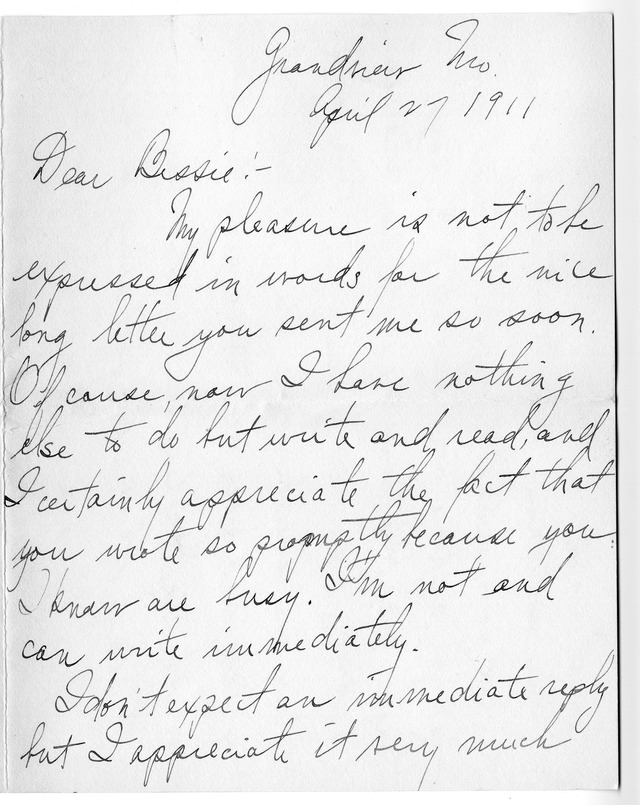 Grandview Mo.
April 27 1911
Dear Bessie:-
My pleasure is not to be
expressed in words for the nice
long letter you sent me so soon.
Of couse, now I have nothing
else to do but write and read, and
I certainly appreciate the fact that
you wrote so promptly because you
I know are busy. I'm not and
can write immediately.
I don't expect an immediate reply
but I appreciate it very much